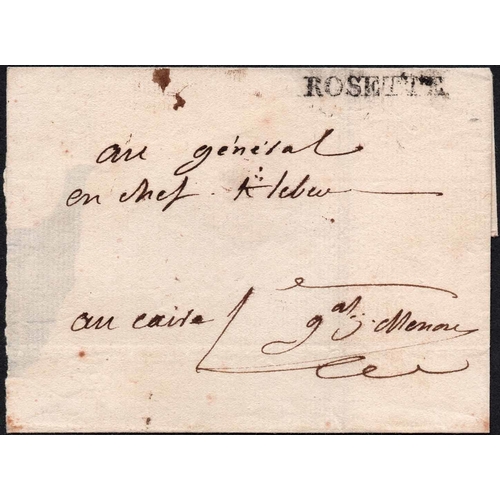 ROSETTE
au général
en chef Kleber
au caire
gal. Menou